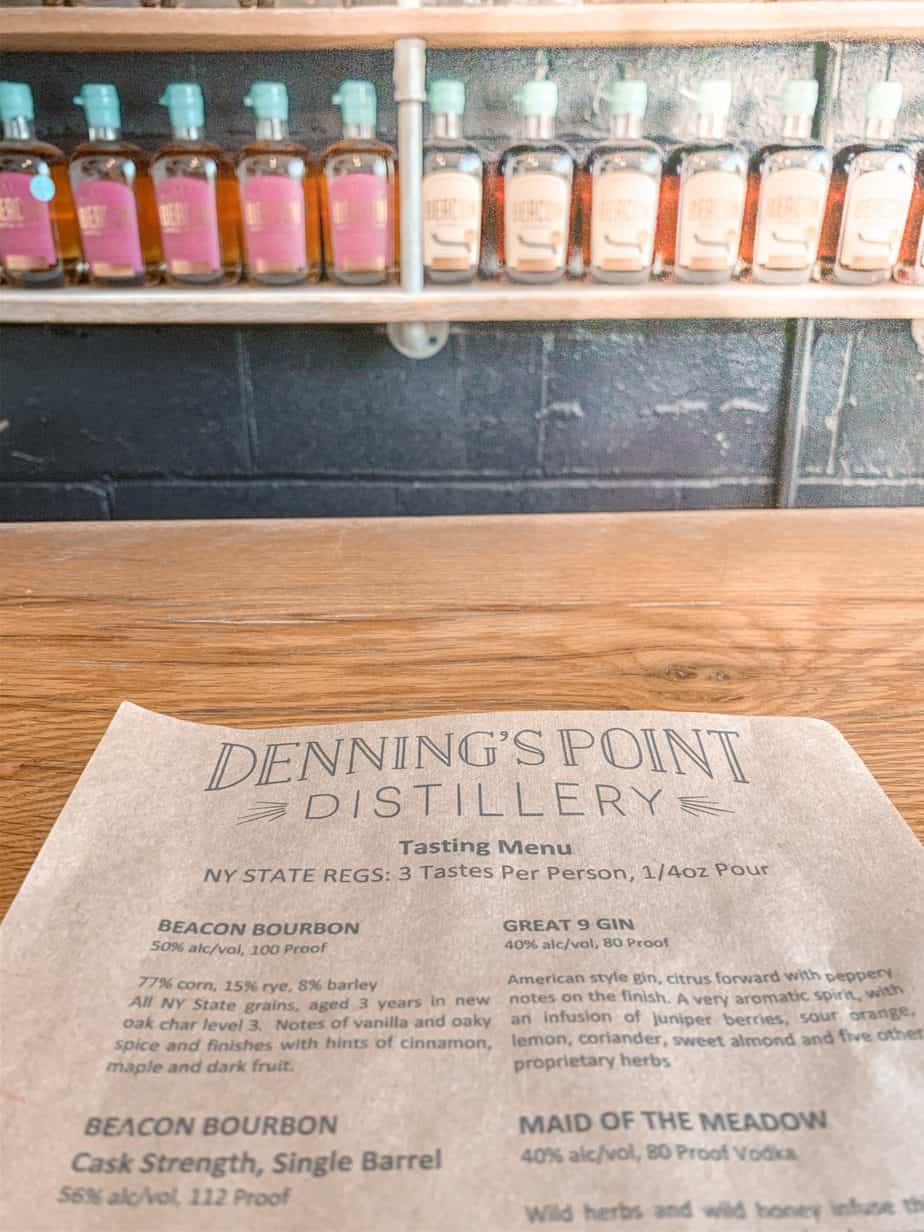 BEACON
BEACON
BEACON
BEACON
BEACON
BEACON
BEACON
BEACON
DENNING'S POINT
DISTILLERY
Tasting Menu
NY STATE REGS: 3 Tastes Per Person, 1/4oz Pour
BEACON BOURBON
50% alc/vol, 100 Proof
77% corn, 15% rye, 8% barley
All NY State grains, aged 3 years in new
oak char level 3. Notes of vanilla and oaky
spice and finishes with hints of cinnamon,
maple and dark fruit.
BEACON BOURBON
Cask Strength, Single Barrel
56% alc/vol, 112 Proof
GREAT 9 GIN
40% alc/vol, 80 Proof
American style gin, citrus forward with peppery
notes on the finish. A very aromatic spirit, with
an infusion of juniper berries, sour orange,
lemon, coriander, sweet almond and five other
proprietary herbs
MAID OF THE MEADOW
40% alc/vol, 80 Proof Vodka
Wild herbs and wild honey infuse